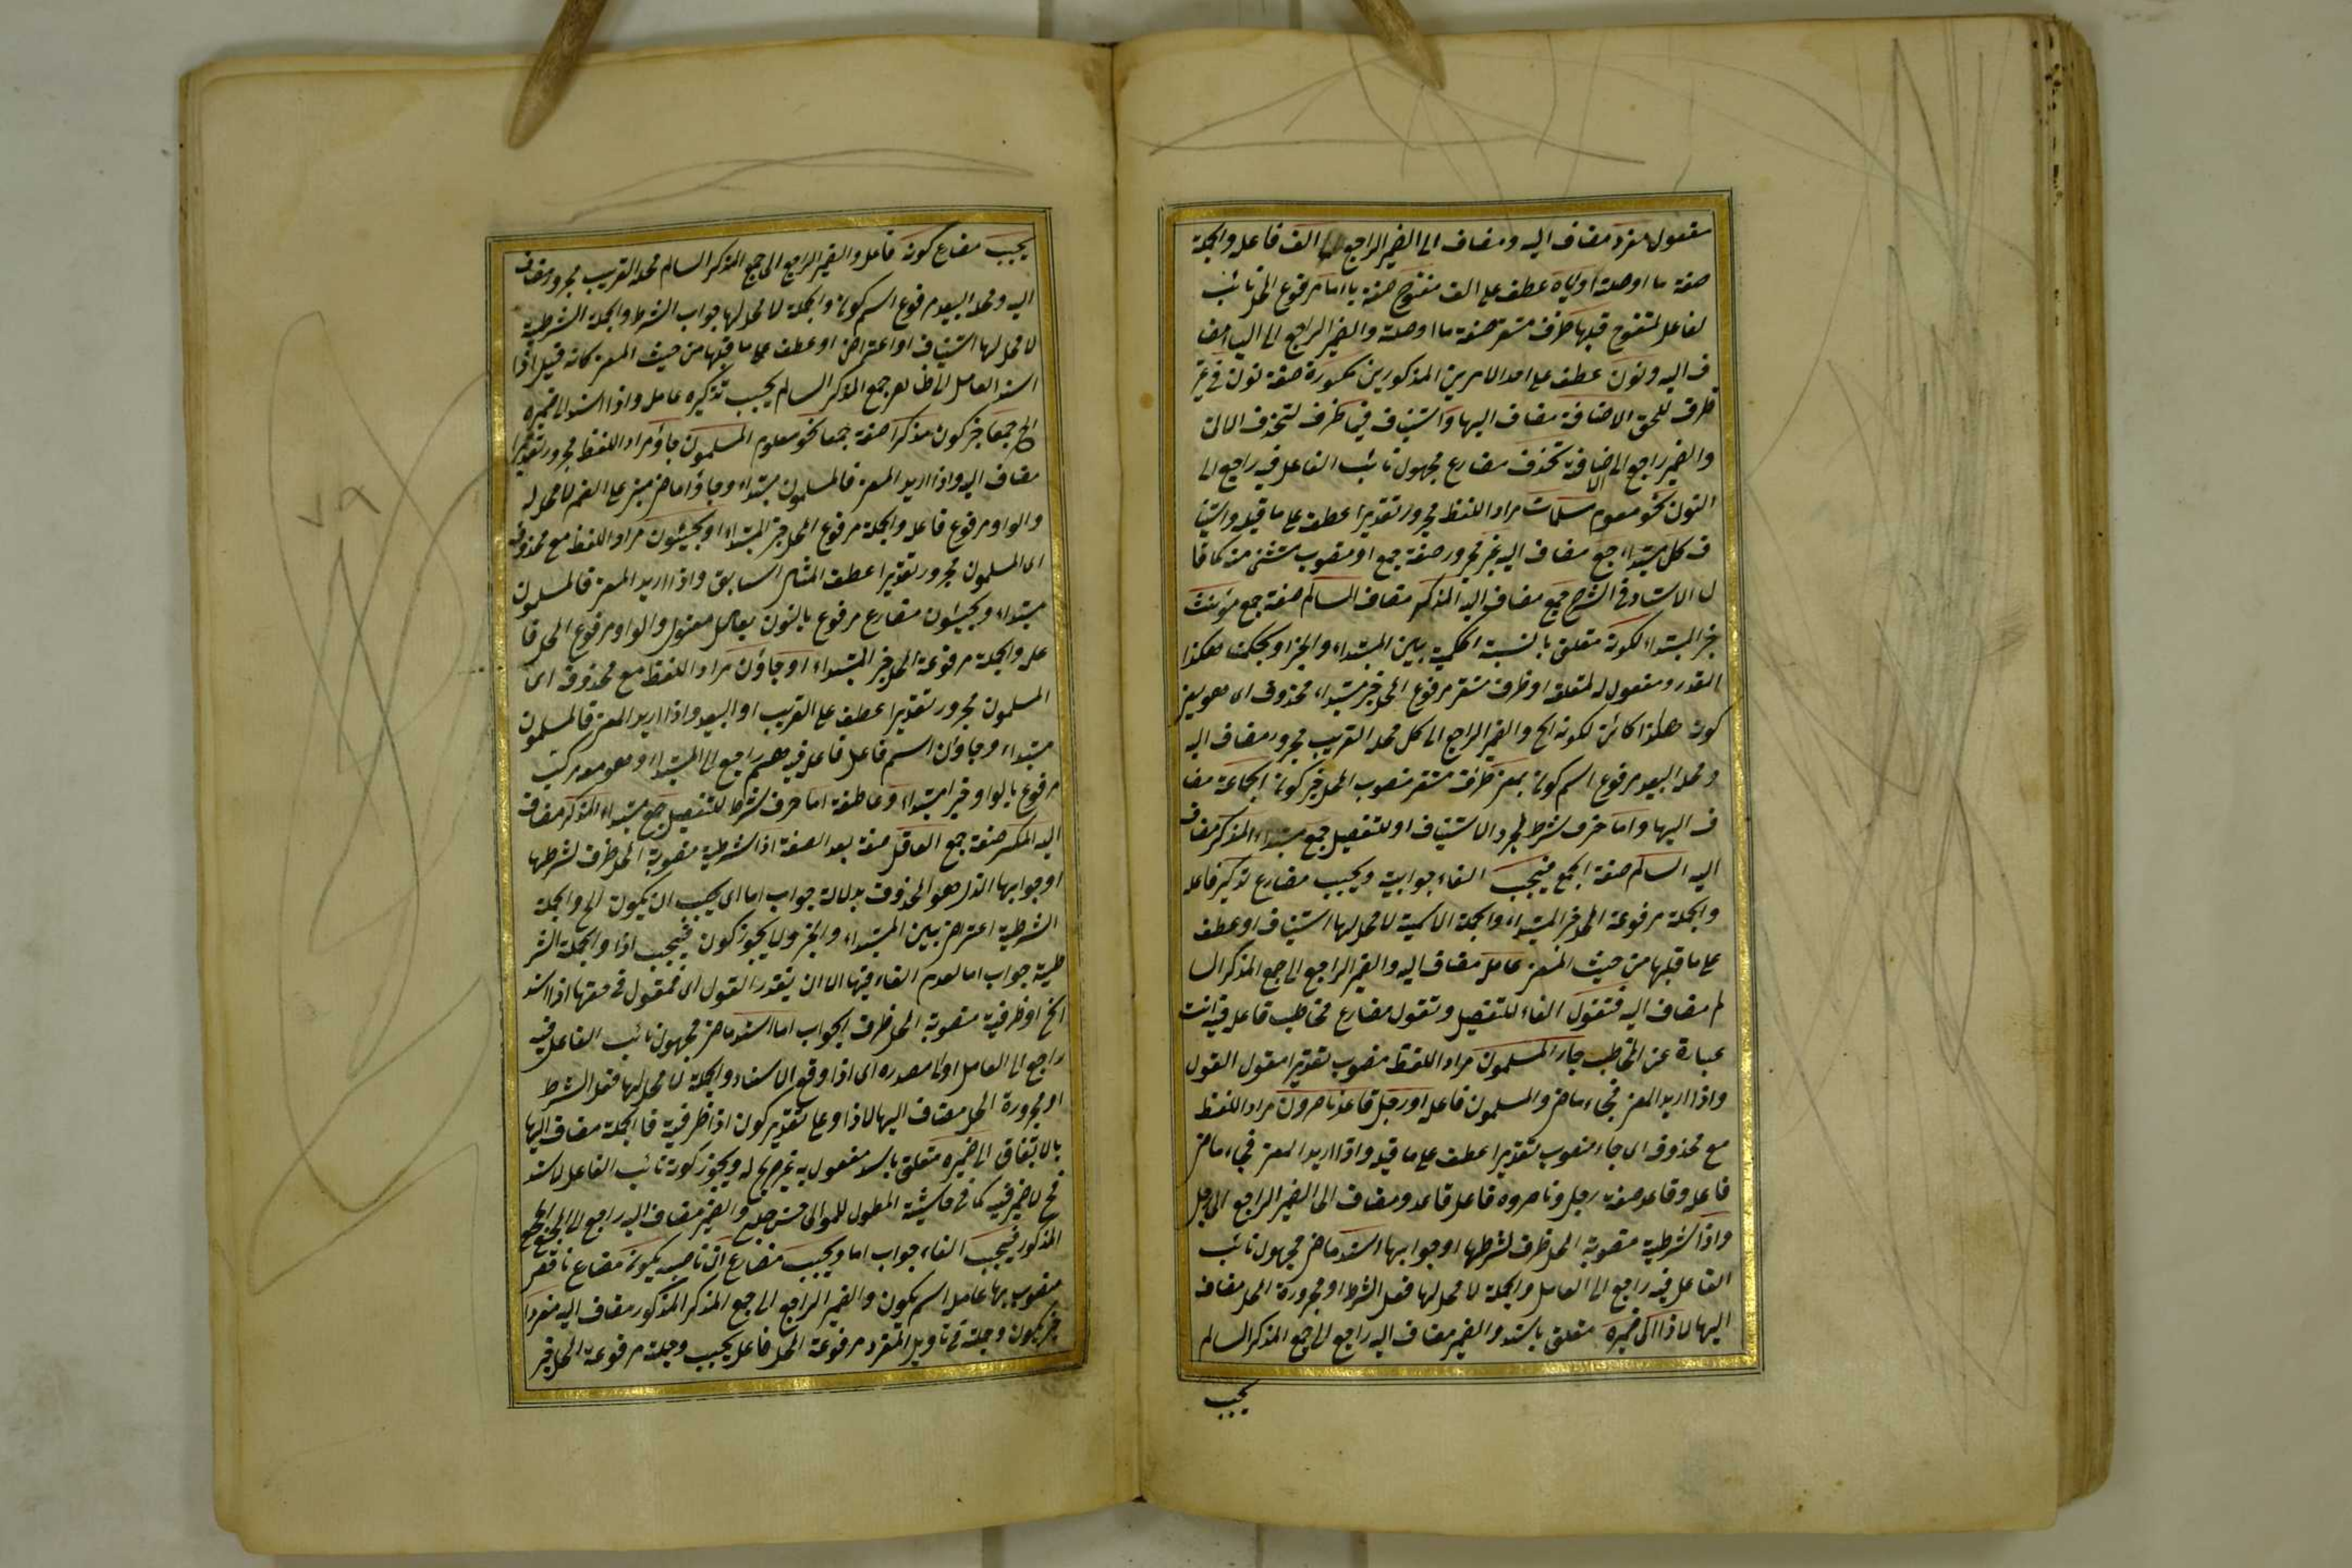 مفعول مفرد مضاف اليه ومضاف الى الضمير الراجع الى الف فاعله والجملة
صفة ما اوصلة اوياء عطف على الف مفتوح صفة ياء اما مرفوع المحل نائب
لفاعل لمفتوح قبلها ظرف مستقر صفة ما اوصلة والضمير الراجع الى الياء مضا
ف اليه ونون عطف على احد الامرين المذكورين مكسورة صفة نون في غير
ظرف للحق الاضافة مضاف اليها واستيناف فيها ظرف لتحذف الاتى
والضمير راجع الى الاضافة تحذف مضارع مجهول نائب الفاعل فيه راجع الى
النون نحو معلوم مسلمات مراد اللفظ مجرور تقديرا عطف على ما قبله واستينا
ف كل مبتداء جمع مضاف اليه غير مجرور صفة جمع او منصوب مستثنى منه كما قا
ل الاستاد في الشرح جمع مضاف اليه المذكر مضاف السالم صفة جمع مؤنث
خبر المبتداء لكونه متعلق بالنسبة الحكمية بين المبتداء والخبر او بحكمت هكذا
المقدر ومفعول له لمتعلقه او ظرف مستقر مرفوع المحل خبر مبتداء محذوف اى هو يعنى
كون هكذا كائن لكونه الخ والضمير الراجع الى كل محله القريب مجرور مضاف اليه
ومحله البعيد مرفوع اسم كون بمعنى ظرف مستقر منصوب المحل خبر كون الجماعة مضا
ف اليها واما حرف شرط لمجرد الاستيناف او للتفصيل جمع مبتداء المذكر مضاف
اليه السالم صفة الجمع فيجب الفاء جوابية ويجب مضارع تذكير فاعله
والجملة مرفوعة المحل خبر المبتداء والجملة الاسمية لا محل لها استيناف او عطف
على ما قبلها من حيث المعنى عامل مضاف اليه والضمير الراجع الى جمع المذكر السا
لم مضاف اليه فتقول الفاء للتفصيل وتقول مضارع مخاطب فاعل فيه انت
عبارة عن المخاطب جاء المسلمون مراد اللفظ منصوب تقديرا مقول القول
واذا اريد المعنى فجاء ماض والمسلمون فاعله او رجل قاعد ناصرون مراد اللفظ
مع محذوف اى جاء منصوب تقديرا عطف على ما قبله واذا اريد المعنى فجاء ماض
فاعله وقاعد صفة رجل وناصروه فاعل قاعد ومضاف الى الضمير الراجع الى رجل
واذا شرطية منصوبة المحل ظرف لشرطها او جوابها اسند ماض مجهول نائب
الفاعل فيه راجع الى العامل والجملة لا محل لها فعل الشرط او مجرورة المحل مضاف
اليها لاذا الى ضميره متعلق باسند والضمير مضاف اليه راجع الى جمع المذكر السالم
يجب
يجب مضارع كونه فاعل والضمير الراجع الى جمع المذكر السالم محله القريب مجرور مضاف
اليه ومحله البعيد مرفوع اسم كون والجملة لا محل لها جواب الشرط والجملة الشرطية
لا محل لها استيناف او اعتراض او عطف على ما قبلها من حيث المعنى كانه قيل اذا
اسند العامل الى ظاهر جمع المذكر السالم يجب تذكيره عامل واذا اسند الى ضميره
الخ جمعا خبر كون مذكرا صفة جمعا نحو معلوم المسلمون جاؤا مراد اللفظ مجرور تقديرا
مضاف اليه واذا اريد المعنى فالمسلمون مبتداء وجاؤا ماض مبنى على الضم لا محل له
والواو مرفوع فاعله والجملة مرفوع المحل خبر المبتداء او يجيئون مراد اللفظ مع محذوف
اى المسلمون مجرور تقديرا عطف المثال السابق واذا اريد المعنى فالمسلمون
مبتداء ويجيئون مضارع مرفوع بالنون بعامل معنوى والواو مرفوع المحل فا
عله والجملة مرفوعة المحل خبر المبتداء او جاؤن مراد اللفظ مع محذوف اى
المسلمون مجرور تقديرا عطف على القريب او البعيد واذا اريد المعنى فالمسلمون
مبتداء وجاؤن اسم فاعل فاعل فيه هم راجع الى المبتداء وهو معه مركب
مرفوع بالواو خبر المبتداء وعاطفة اما حرف شرط للتفصيل جمع مبتداء المذكر مضاف
اليه المكسر صفة جمع العاقل صفة بعد الصفة اذا شرطية منصوبة المحل ظرف لشرطها
او جوابها الذى هو المحذوف بدلالة جواب اما اى يجب ان يكون الخ والجملة
الشرطية اعتراض بين المبتداء والخبر ولا يجوز كون فيجب اذا والجملة الشر
طية جواب اما لعدم الفاء فيها الا ان يقدر القول اى فمقول في حقها اذا اسند
الخ او ظرفية منصوبة المحل ظرف الجواب اما اسند ماض مجهول نائب الفاعل فيه
راجع الى العامل اولى مصدره اى اذا وقع الاسناد والجملة لا محل لها فعل الشرط
او مجرورة المحل مضاف اليها لاذا وعلى تقدير كون اذا ظرفية فالجملة مضاف اليها
بالاتفاق الى ضميره متعلق باسند مفعول به غير صريح له ويجوز كونه نائب الفاعل لاسند
فح لا ضمير فيه كما في حاشية المطول للمولى حسن چلبى والضمير مضاف اليه راجع الى الجمع
المذكور فيجب الفاء جواب اما ويجب مضارع ان ناصبه يكون مضارع ناقص
منصوب بها عامل اسم يكون والضمير الراجع الى جمع المذكر المذكور مضاف اليه مفردا
خبر يكون وجملة في تاويل المفرد مرفوعة المحل فاعل يجب وجملة مرفوعة المحل خبر